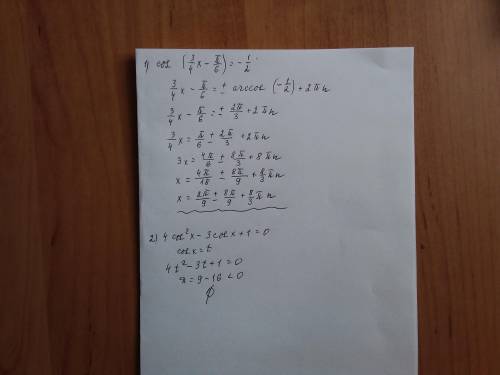 1) cos (3/4 x - π/6) = - 1/2
3/4 x - π/6 = ± arccos (- 1/2) + 2πn
3/4 x - π/6 = ± 2π/3 + 2πn
3/4 x = π/6 ± 2π/3 + 2πn
3x = 4π/6 ± 8π/3 + 8πn
x = 4π/18 ± 8π/9 + 8/3 πn
x = 2π/9 ± 8π/9 + 8/3 πn
2) 4 cos²x - 3 cos x + 1 = 0
cos x = t
4t² - 3t + 1 = 0
D = 9 - 16 < 0
∅